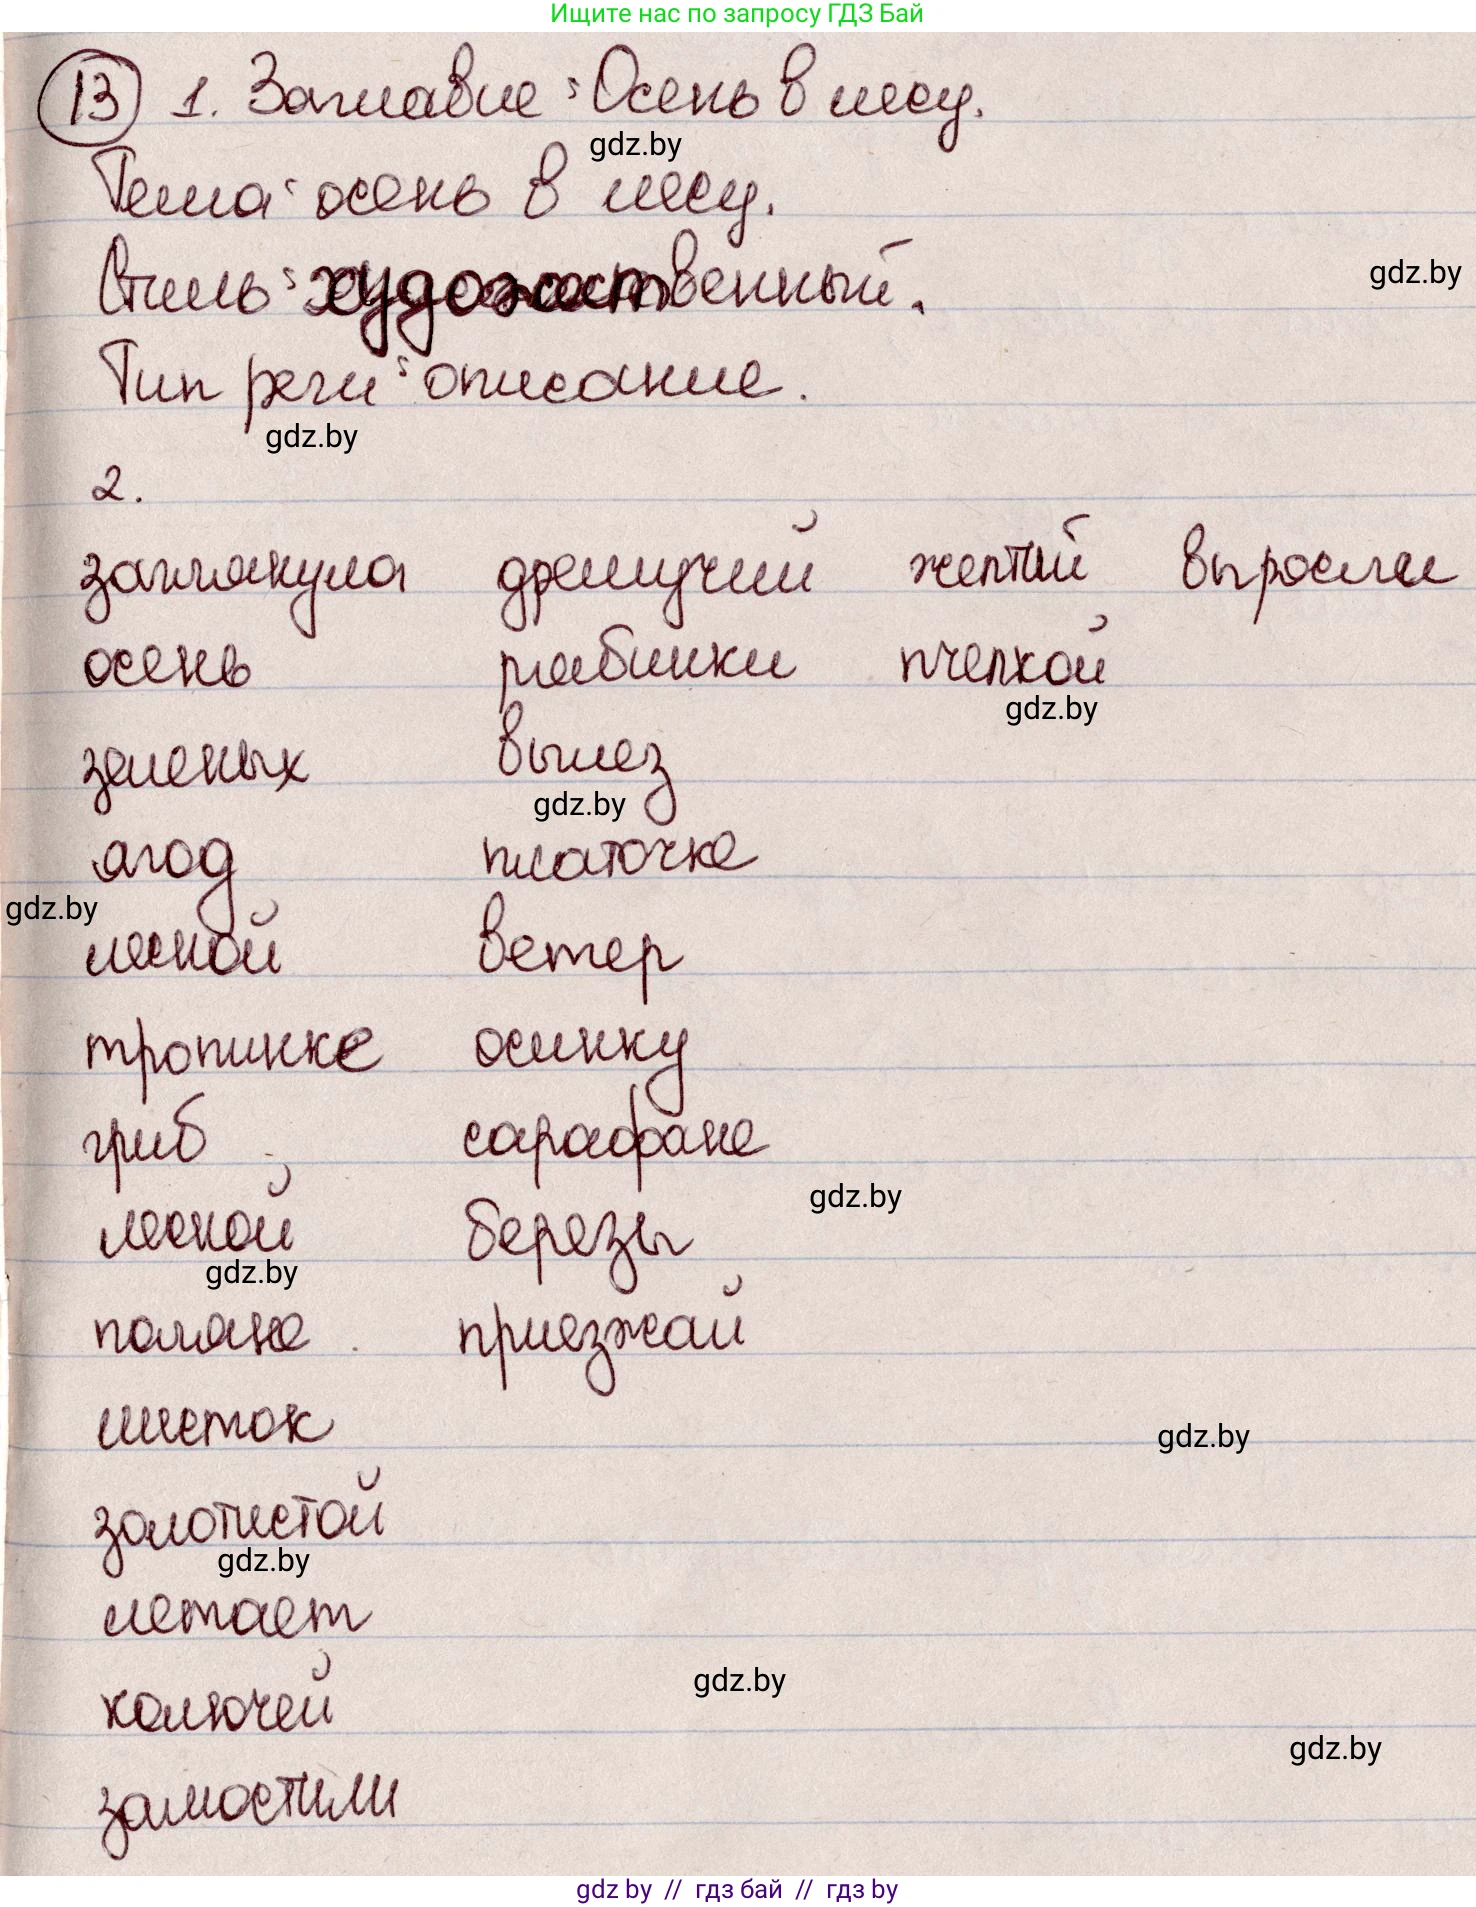 Ищите нас по запросу ГДЗ Бай
13 1. Заглавие: Осень в лесу.
gdz.by
Тема: осень в лесу.
Стиль: художественный.
gdz.by
Тип речи: описание.
gdz.by
2.
заглянула дремучий желтый выросли
осень рябинки пчелкой
gdz.by
зеленых вылез
gdz.by
ягод платочке
gdz.by
лесной ветер
тропинке осинку
гриб сарафане
gdz.by
лесной березы
gdz.by
поляне приезжай
листок
gdz.by
золотистой
gdz.by
летает
gdz.by
колючей
gdz.by
замостили
gdz by // гдз бай // гдз by